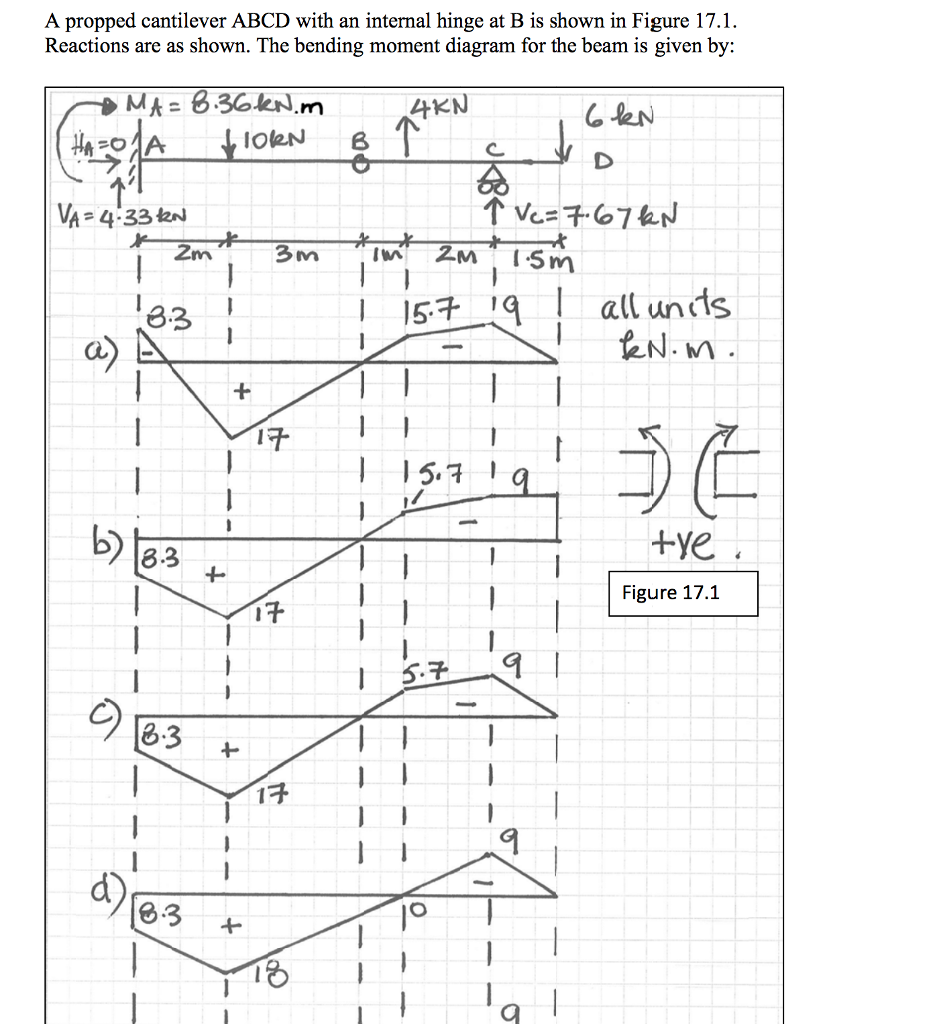 A propped cantilever ABCD with an internal hinge at B is shown in Figure 17.1.
Reactions are as shown. The bending moment diagram for the beam is given by:
MA = 8.36 kN.m
4KN
6 kN
HA=0
A
10kN
B
C
D
VA = 4.33 kN
Vc = 7.67 kN
2m
3m
1m
2M
1.5m
a)
8.3
-
+
17
5.7
-
9
all units
kN.m.
+ve.
Figure 17.1
b)
8.3
+
17
5.7
-
9
c)
8.3
+
17
5.7
-
9
d)
8.3
+
18
0
-
9
9